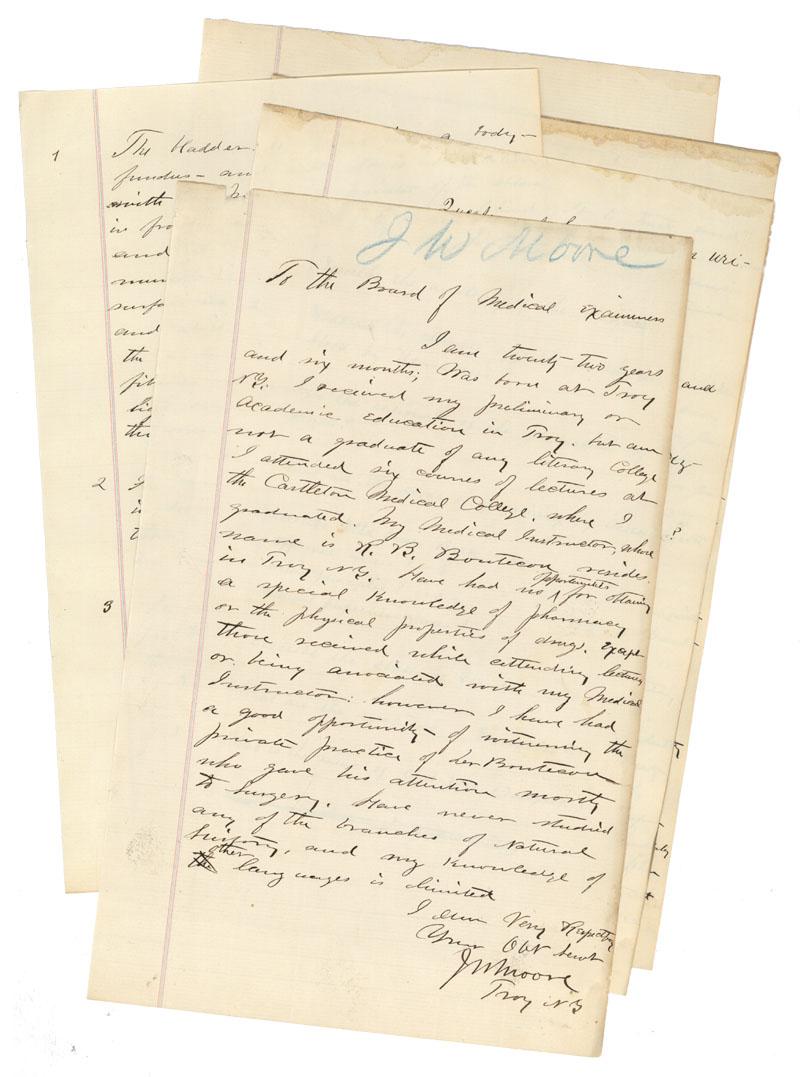 J W Moore
To the Board of Medical Examiners
I am twenty-two years
and six months; Was born at Troy
N.Y. I received my preliminary or
academic education in Troy. but am
not a graduate of any literary College
I attended six courses of lectures at
the Castleton Medical College. where I
graduated. My Medical Instructor, whose
name is R. B. Bontecou resides
in Troy N.Y. Have had no opportunities for attaining
a special knowledge of pharmacy
or the physical properties of drugs. except
those received while attending lectures
or being associated with my Medical
Instructor: however I have had
a good opportunity of witnessing the
private practice of Dr Bontecou
who gave his attention mostly
to Surgery. Have never studied
any of the branches of Natural
history, and my knowledge of
other languages is limited
I am Very Respectfly
Your Obt Servt
J W Moore
Troy N.Y
1
The bladder
fundus- an
with
in fro
and
mus
surfa
and
the
fib
lig
the
2
3
a body-
uri-
and
?